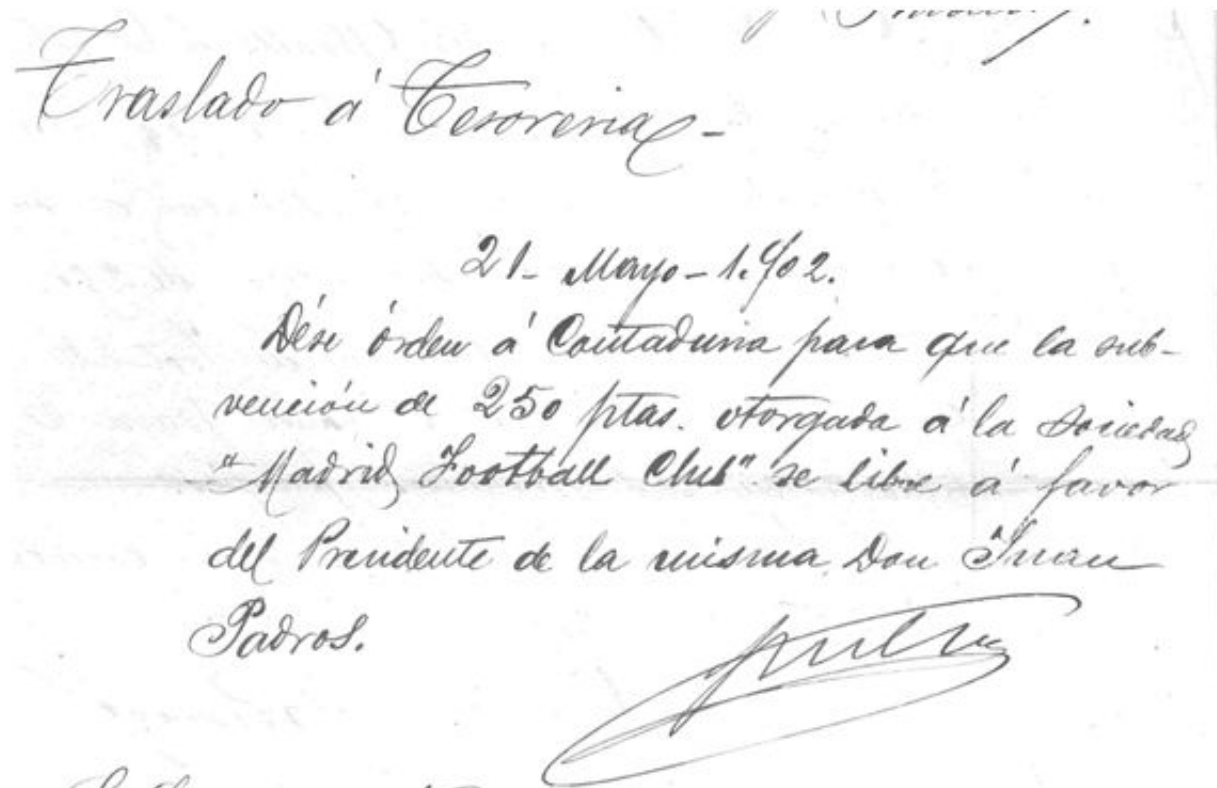 Traslado á Tesoreria -
21 - Mayo - 1.902.
Dése órden á Contaduria para que la sub-
vención de 250 ptas. otorgada á la Sociedad
"Madrid Football Club" se libre á favor
del Presidente de la misma Don Juan
Padros.